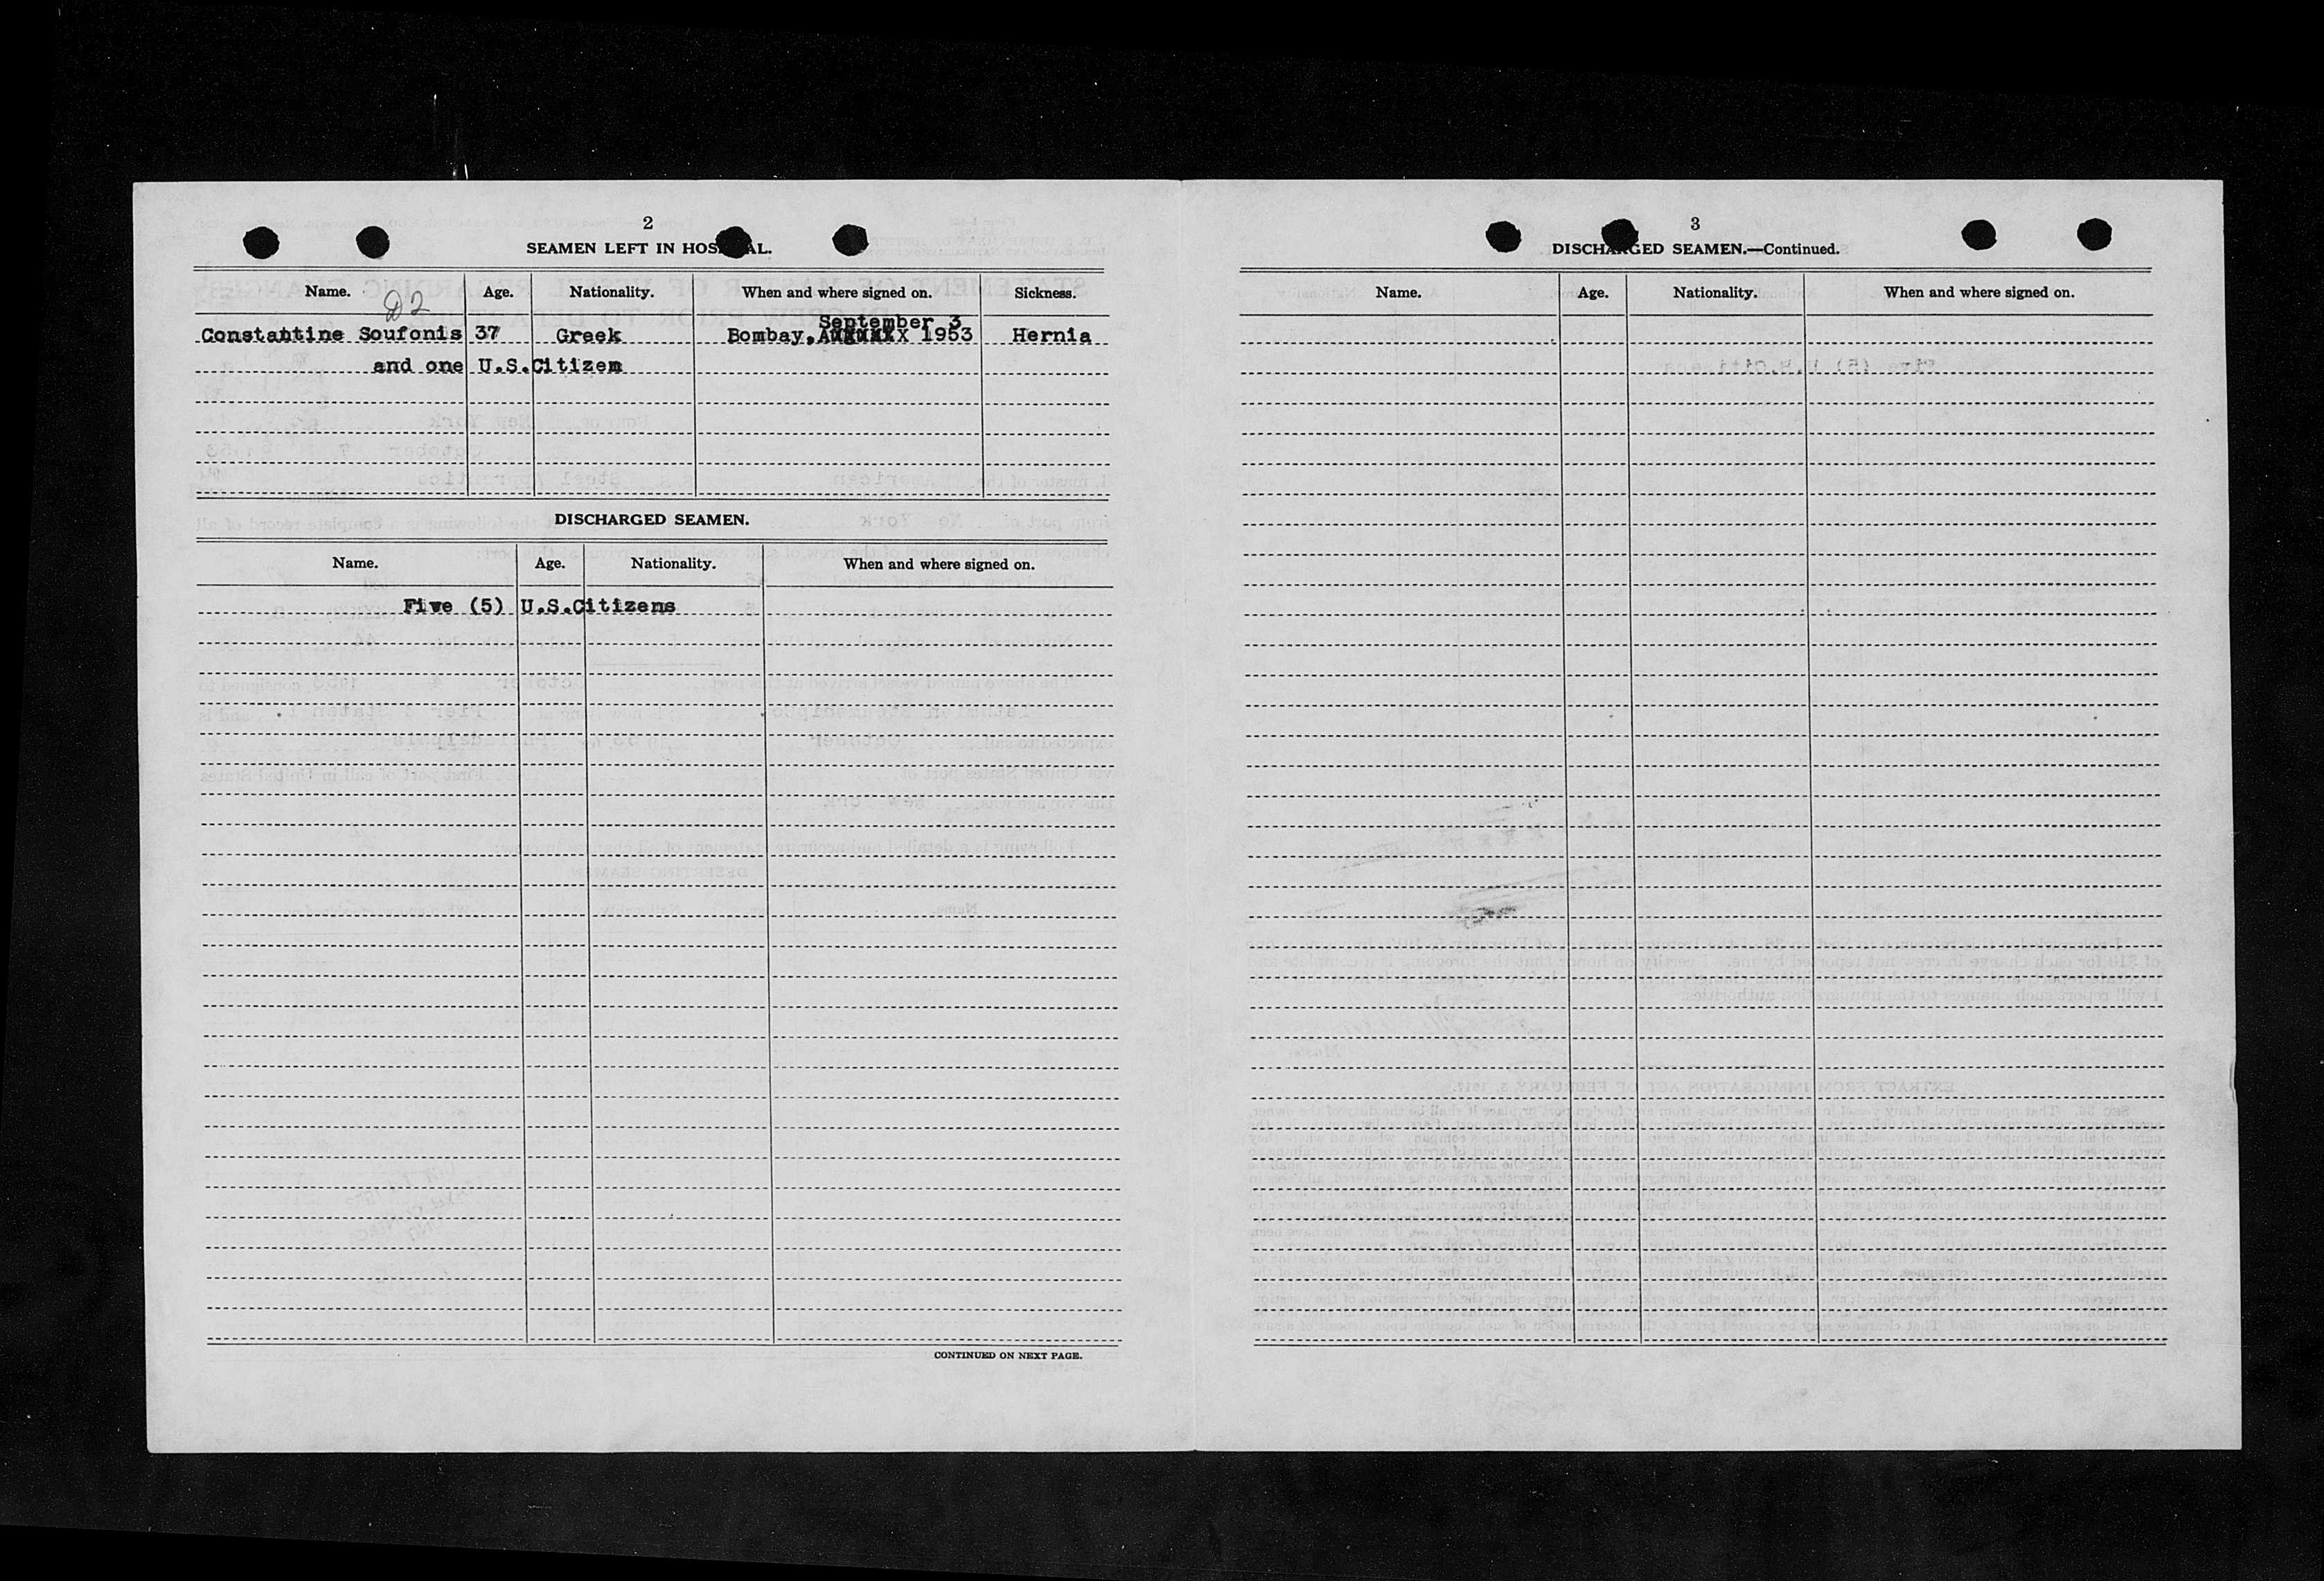 2
SEAMEN LEFT IN HOS AL.
Name. Age. Nationality. When and where signed on. Sickness.
D2
September 3
Constantine Soufonis 37 Greek Bombay, 1953 Hernia
and one U.S.Citizen
DISCHARGED SEAMEN.
Name. Age. Nationality. When and where signed on.
Five (5) U.S.Citizens
CONTINUED ON NEXT PAGE.
3
DISCHARGED SEAMEN.—Continued.
Name. Age. Nationality. When and where signed on.